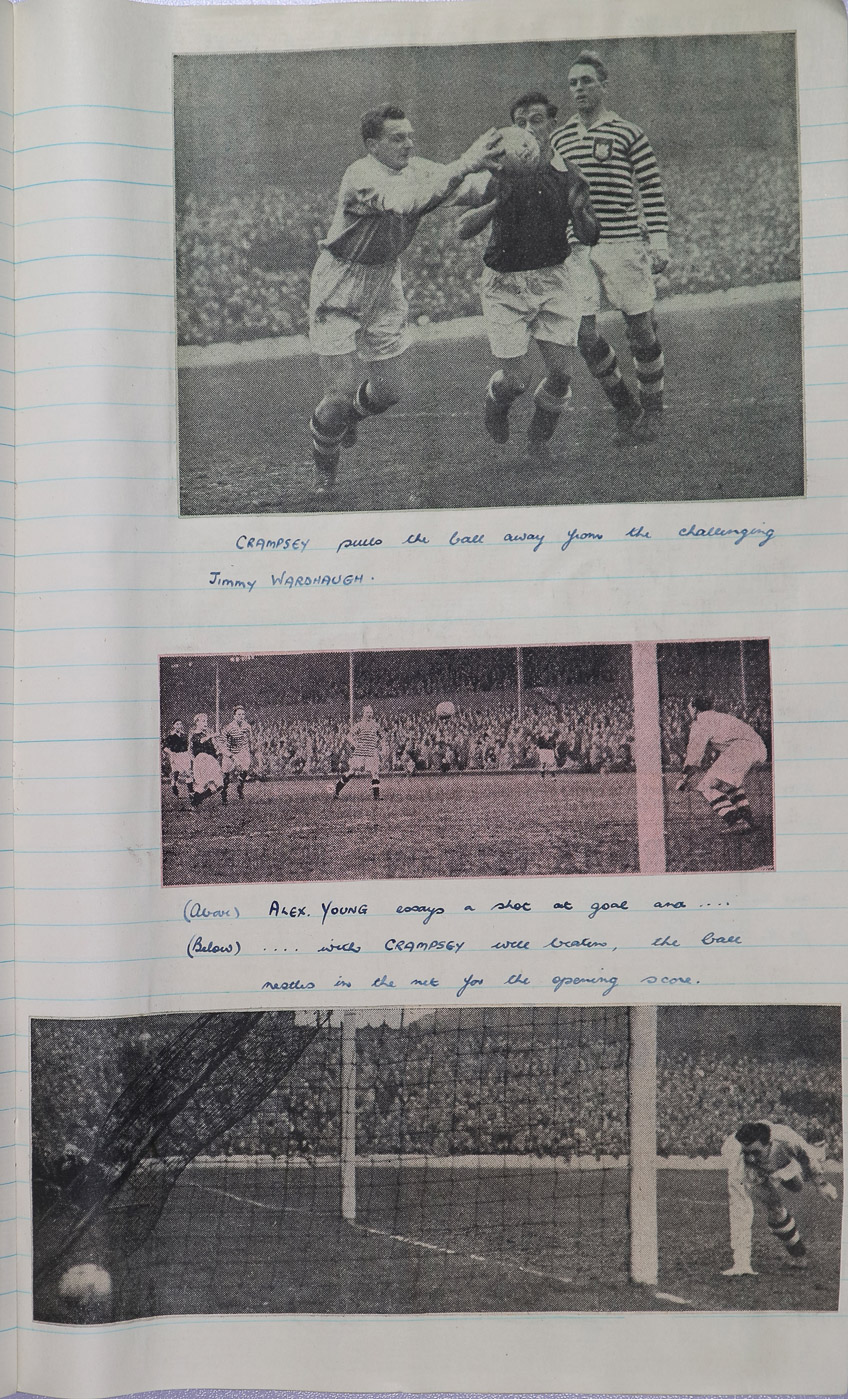 CRAMPSEY pulls the ball away from the challenging
Jimmy WARDHAUGH.
(Above) ALEX. YOUNG essays a shot at goal and ....
(Below) .... with CRAMPSEY well beaten, the ball
nestles in the net for the opening score.